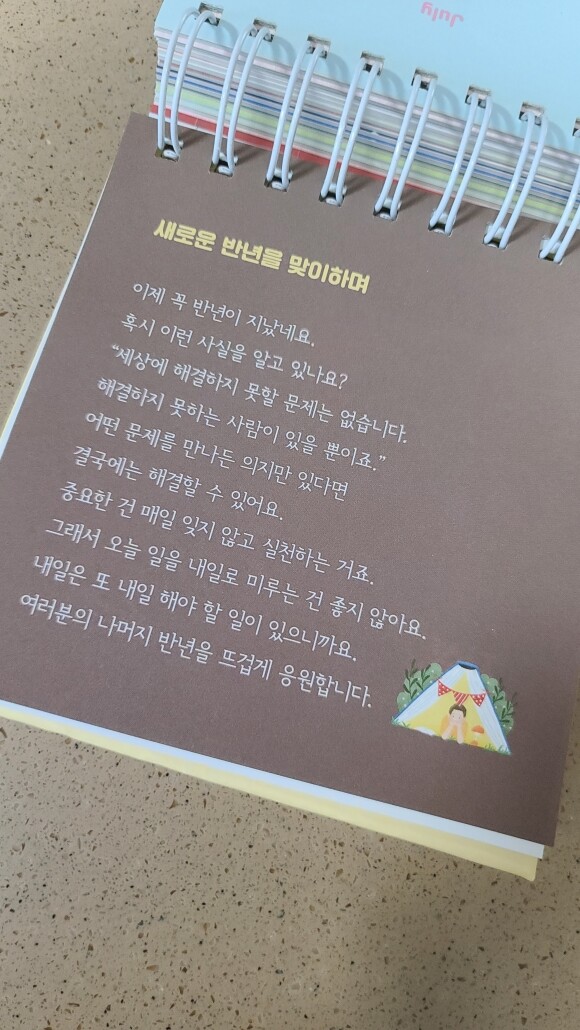 July
새로운 반년을 맞이하며
이제 꼭 반년이 지났네요.
혹시 이런 사실을 알고 있나요?
“세상에 해결하지 못할 문제는 없습니다.
해결하지 못하는 사람이 있을 뿐이죠.”
어떤 문제를 만나든 의지만 있다면
결국에는 해결할 수 있어요.
중요한 건 매일 잊지 않고 실천하는 거죠.
그래서 오늘 일을 내일로 미루는 건 좋지 않아요.
내일은 또 내일 해야 할 일이 있으니까요.
여러분의 나머지 반년을 뜨겁게 응원합니다.